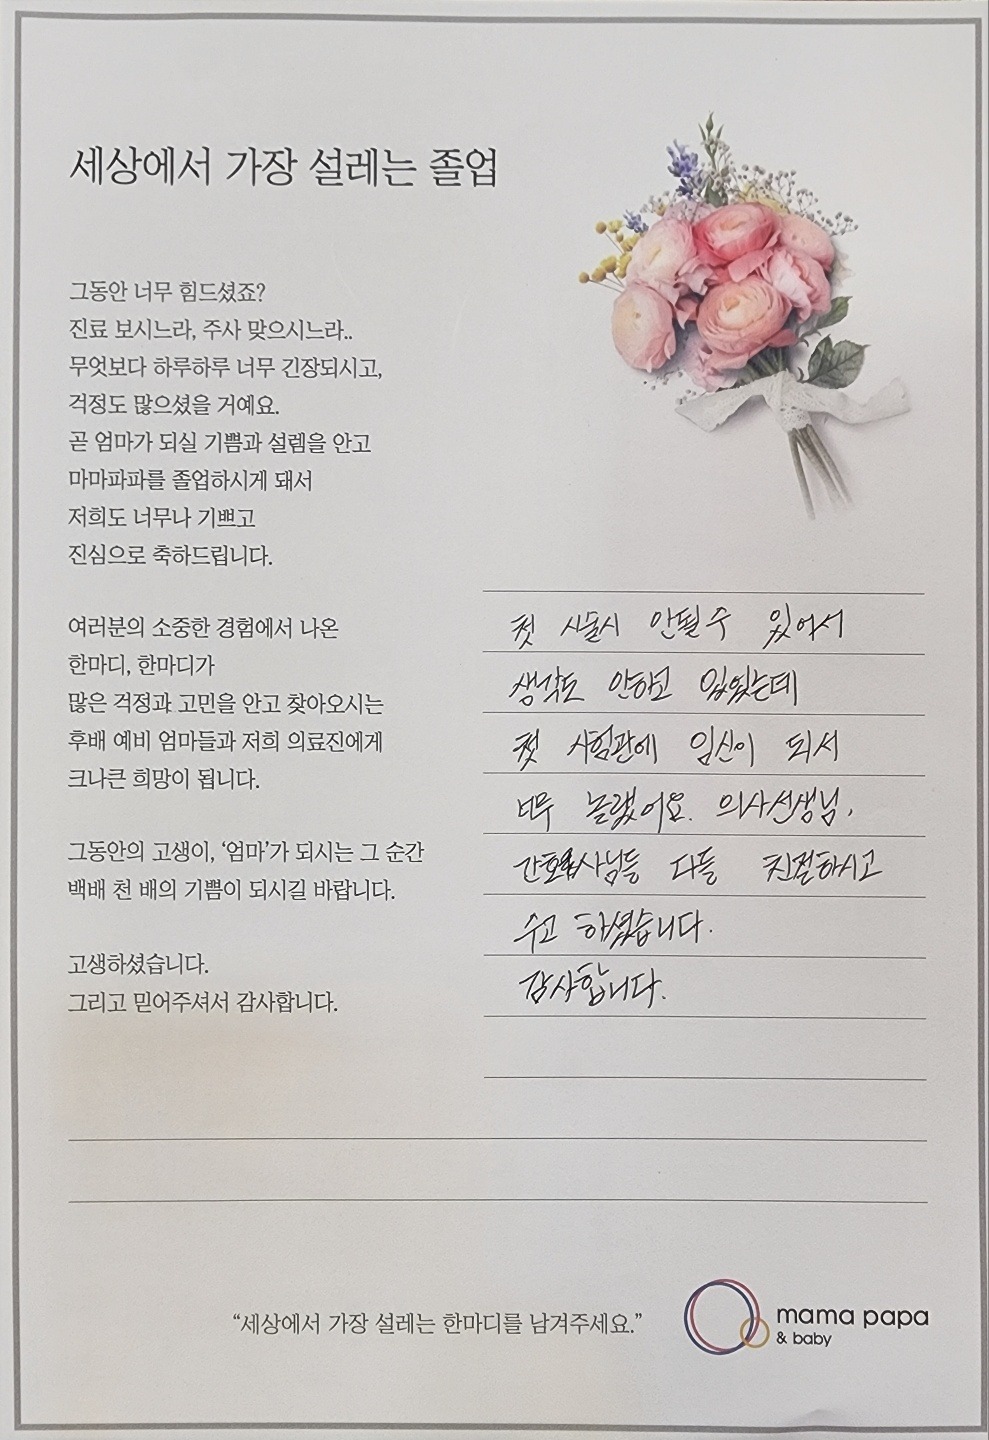 세상에서 가장 설레는 졸업
그동안 너무 힘드셨죠?
진료 보시느라, 주사 맞으시느라..
무엇보다 하루하루 너무 긴장되시고,
걱정도 많으셨을 거예요.
곧 엄마가 되실 기쁨과 설렘을 안고
마마파파를 졸업하시게 돼서
저희도 너무나 기쁘고
진심으로 축하드립니다.
여러분의 소중한 경험에서 나온
한마디, 한마디가
많은 걱정과 고민을 안고 찾아오시는
후배 예비 엄마들과 저희 의료진에게
크나큰 희망이 됩니다.
그동안의 고생이, ‘엄마’가 되시는 그 순간
백배 천 배의 기쁨이 되시길 바랍니다.
고생하셨습니다.
그리고 믿어주셔서 감사합니다.
첫 시술시 안될수 있어서
생각도 안하고 있었는데
첫 시험관에 임신이 되서
너무 놀랬어요. 의사선생님,
간호사님들 다들 친절하시고
수고 하셨습니다.
감사합니다.
“세상에서 가장 설레는 한마디를 남겨주세요.”
mama papa
& baby